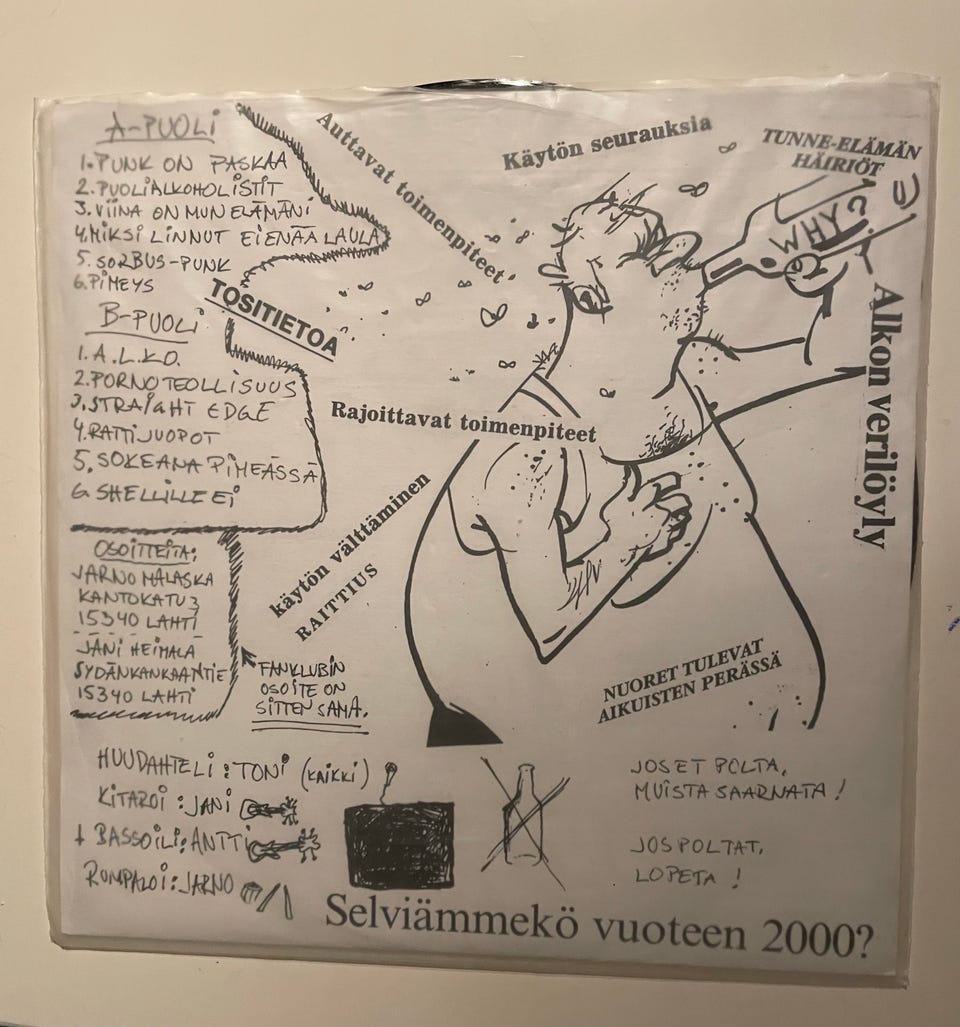 A-PUOLI
1. PUNK ON PASKAA
2. PUOLIALKOHOLISTIT
3. VIINA ON MUN ELÄMÄNI
4. MIKSI LINNUT EI ENÄÄ LAULA
5. SORBUS-PUNK
6. PIMEYS
B-PUOLI
1. A.L.K.O.
2. PORNOTEOLLISUUS
3. STRAIGHT EDGE
4. RATTIJUOPOT
5. SOKEANA PIMEÄSSÄ
6 SHELLILLE EI
TOSITIETOA
Auttavat toimenpiteet
Käytön seurauksia
TUNNE-ELÄMÄN
HÄIRIÖT
WHY?
Alkon verilöyly
Rajoittavat toimenpiteet
käytön välttäminen
RAITTIUS
OSOITTEITA:
JARNO MÄLASKA
KANTOKATU 3
15340 LAHTI
JANI HEIMALA
SYDÄNKANKAANTIE
15340 LAHTI
FANKLUBIN
OSOITE ON
SITTEN SAMA.
NUORET TULEVAT
AIKUISTEN PERÄSSÄ
HUUDAHTELI: TONI (KAIKKI)
KITAROI: JANI
+ BASSOILI: ANTTI
RUMPALOI: JARNO
JOS ET POLTA,
MUISTA SAARNATA!
JOS POLTAT,
LOPETA!
Selviämmekö vuoteen 2000?